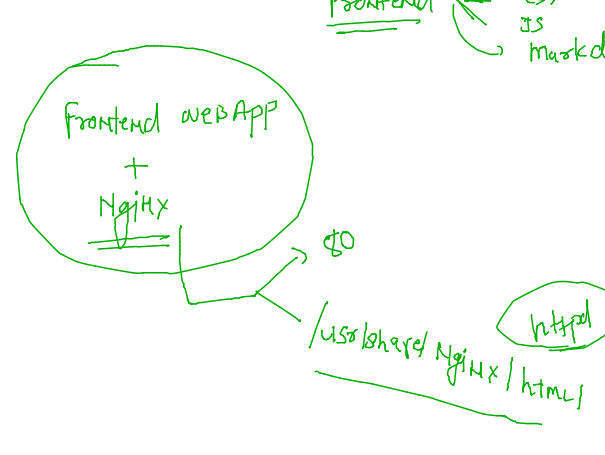 Frontend
JS
Markd
Frontend WEBAPP
+
NgiNx
80
/usr/share/NgiNx/html/
httpd